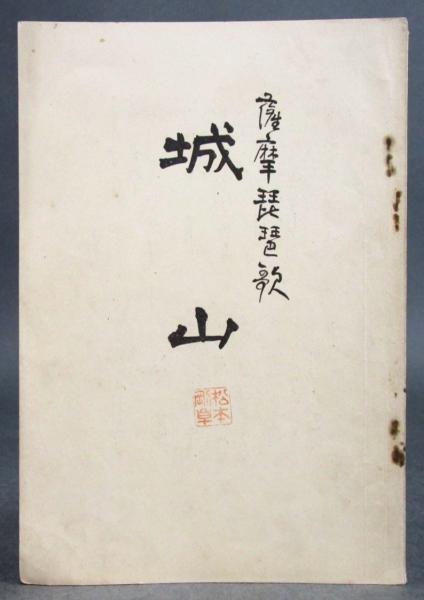 薩摩琵琶歌
城山
松本